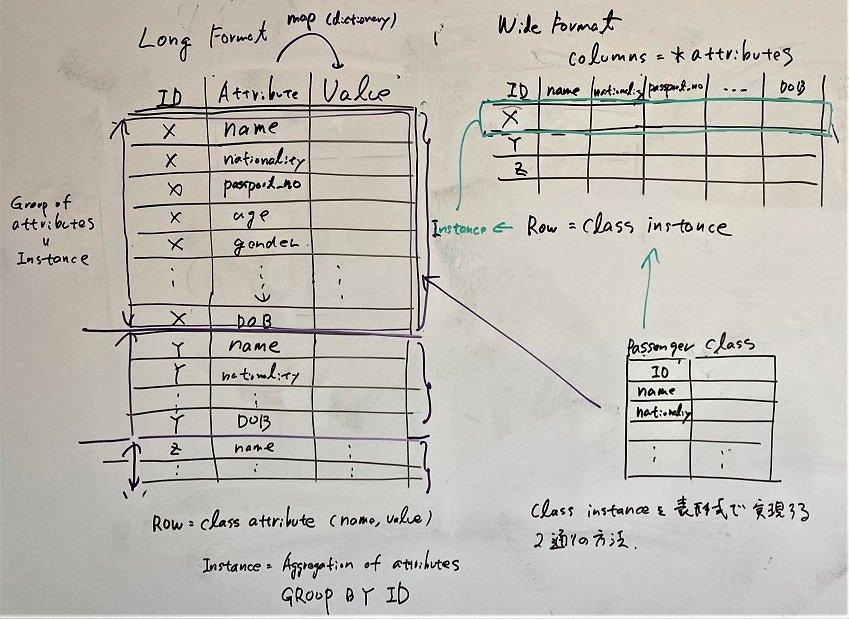 Long Format
map (dictionary)
ID Attribute Value
X name
X nationality
X passport_no
X age
X gender
⋮ ⋮ ⋮
X DOB
Y name
Y nationality
⋮ ⋮
Y DOB
Z name ⋮
⋮ ⋮ ⋮
Group of
attributes
Instance
Row = class attribute (name, value)
Instance = Aggregation of attributes
GROUP BY ID
Wide Format
columns = * attributes
ID name nationality passport_no --- DOB
X
Y
Z
Instance ← Row = Class instance
Passenger class
ID
name
nationality
⋮ ⋮
Class instanceを表形式で実現する
2通りの方法.